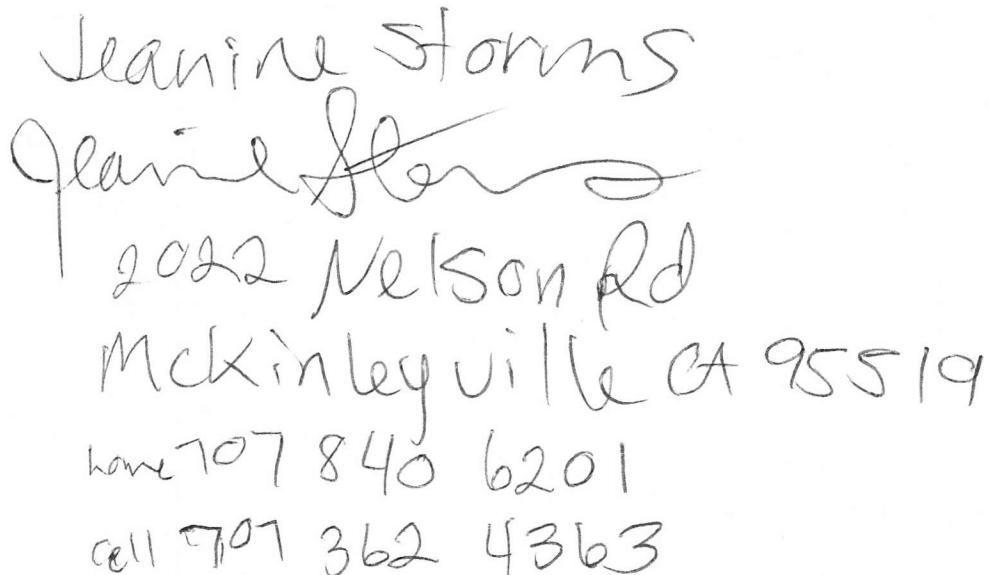 Jeanine Storms
Jeanine Storms
2022 Nelson Rd
McKinleyville CA 95519
home 707 840 6201
cell 707 362 4363